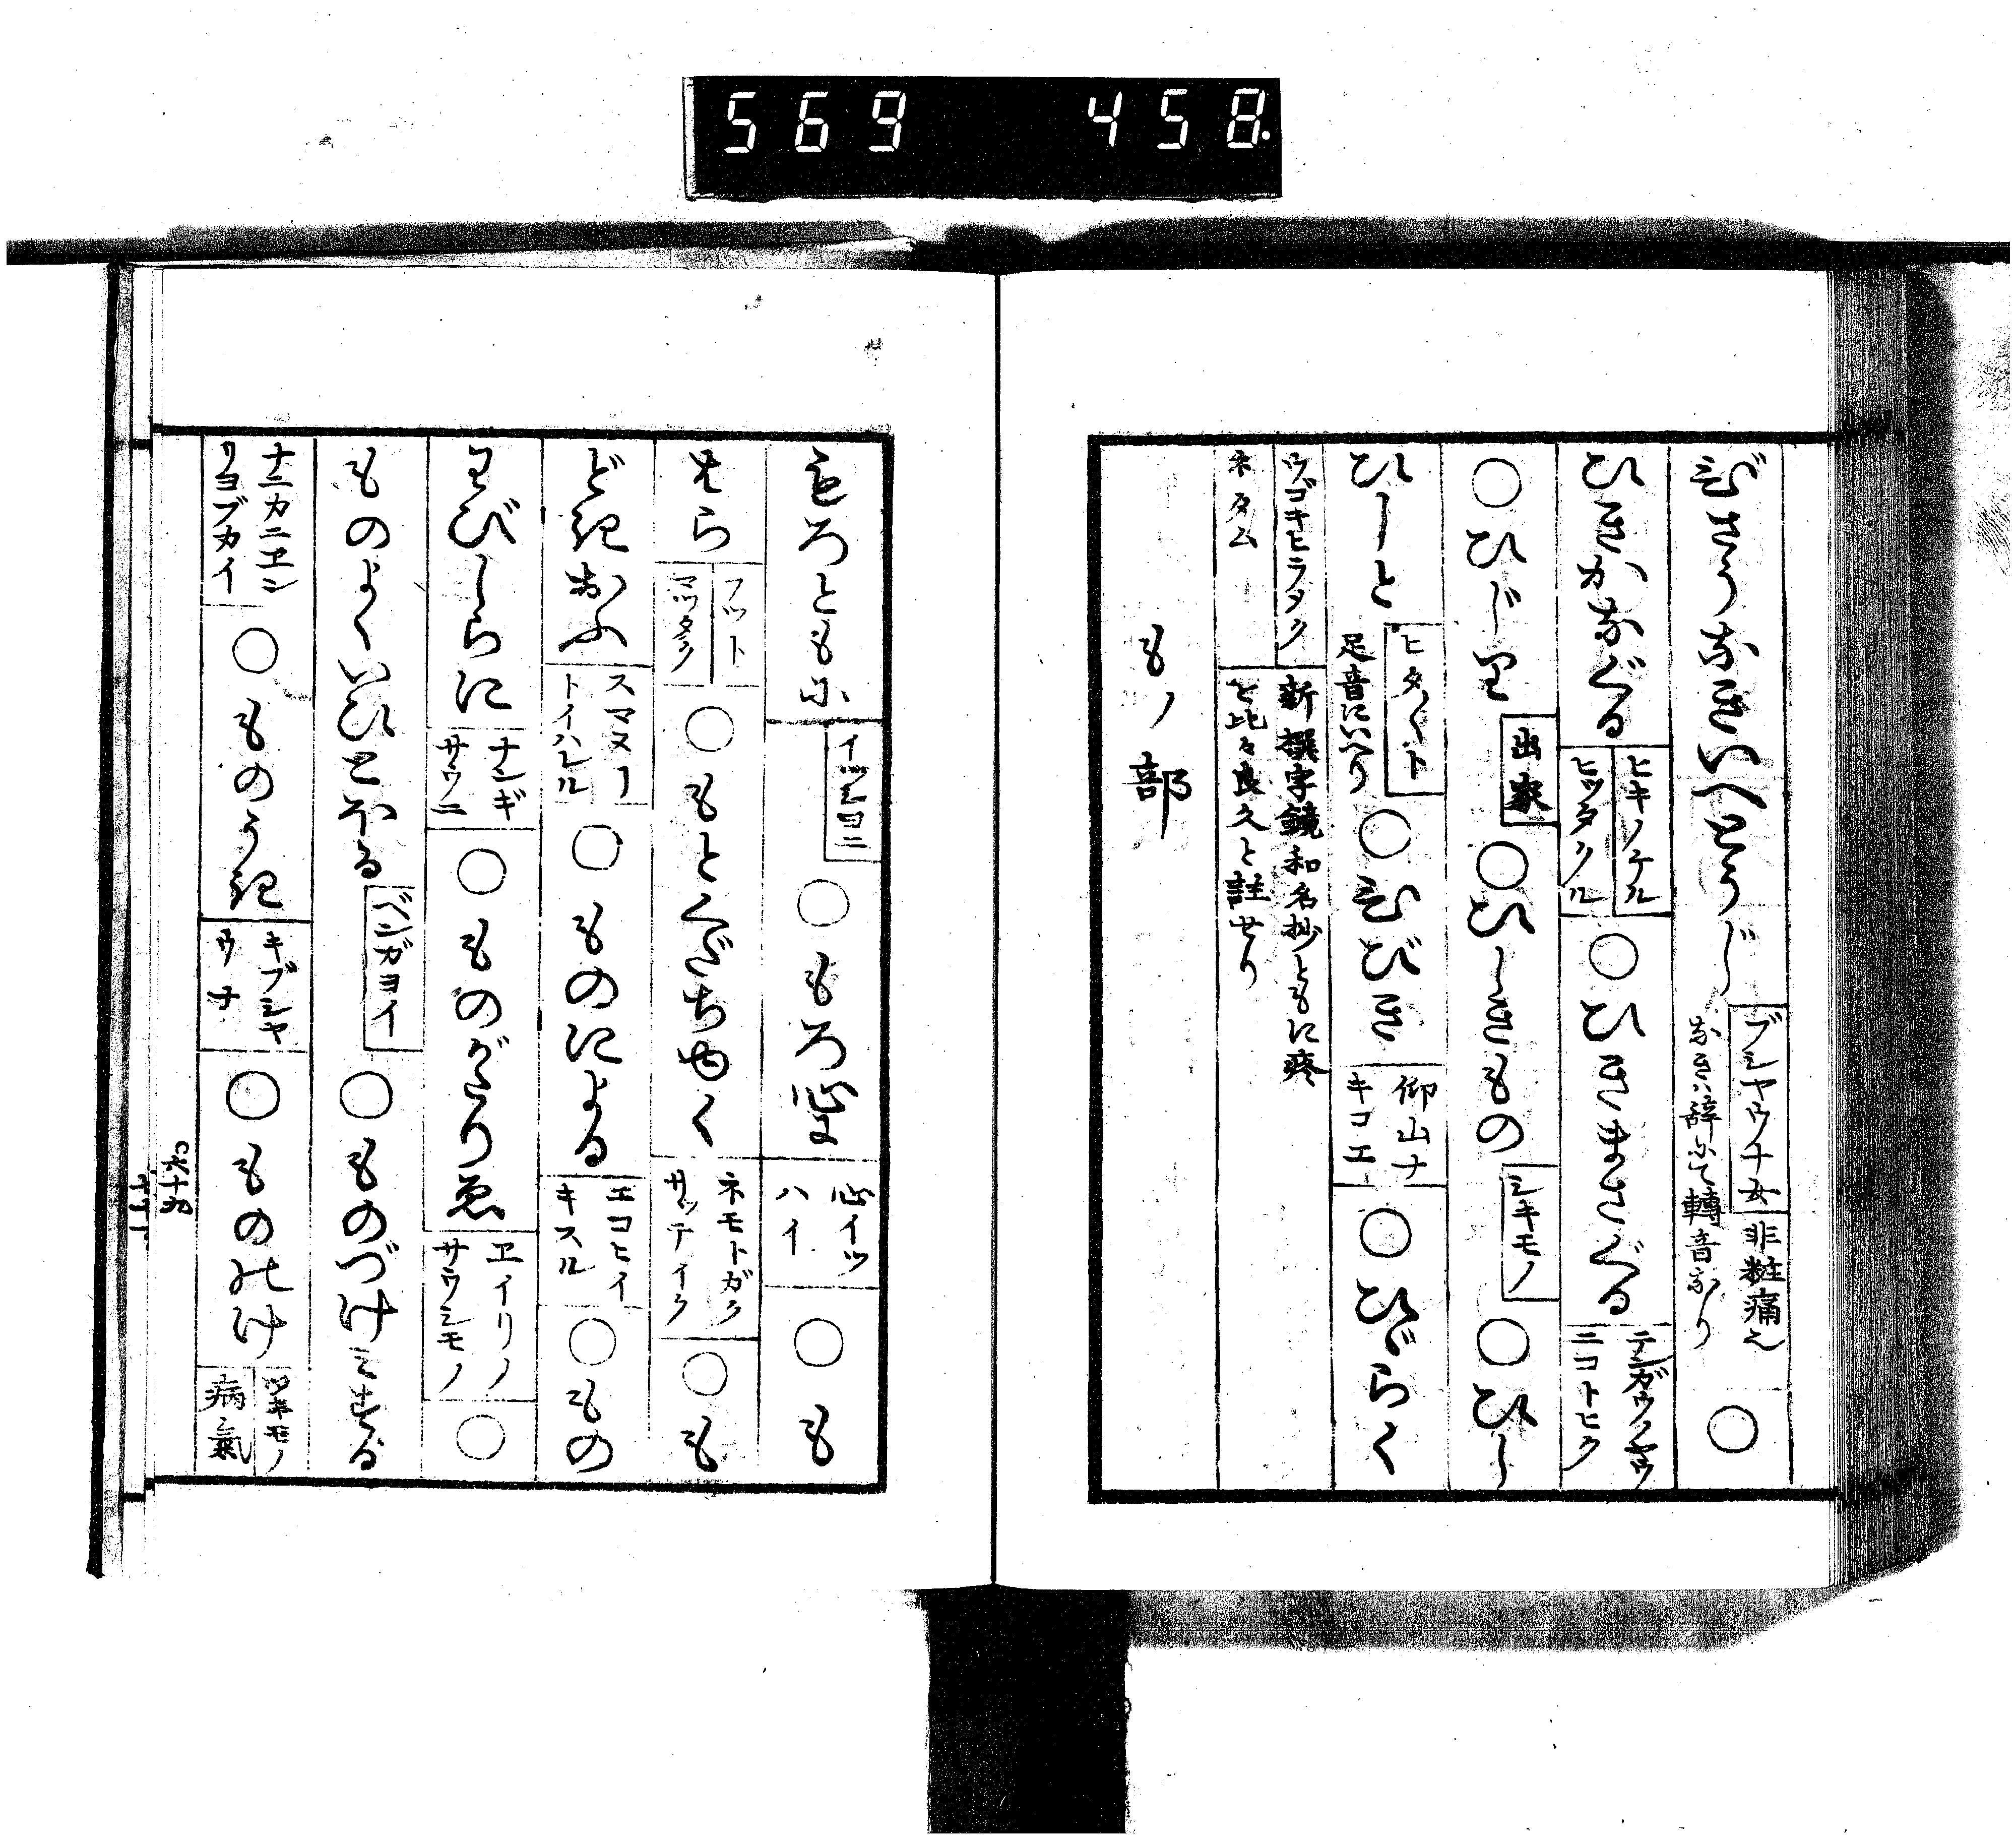 569 458.
びさうなきいへとうじ ブシヤウナ女 非粧痛也 なきハ辞にて轉音なり ○
ひきかなぐる ヒキノケル ヒツタクル ○ひきまさぐる テンガウノヤウ ニコトヒク
○ひじり 出家 ○ひしきもの シキモノ ○ひし
ひしと ヒタ〱ト 足音にいへり ○ひびき 仰山ナ キコエ ○ひゞらく
ウゴキヒラタク ネタム 新撰字鏡和名抄ともに疼を比々良久と註せり
もノ部
もろともに イツシヨニ ○もろ心に 心イツ ハイ ○も
はら フツト マツタク ○もとくだちゆく ネモトガク サツテイク ○も
どきおふ スマヌー トイハレル ○ものによる エコヒイ キスル ○もの
わびしらに ナンギ サウニ ○ものがたりゑ ヱイリノ サウシモノ ○
ものよくいひとほる ベンガヨイ ○ものづけミする
ナニカニヱン リヨブカイ ○ものうき キブシヤ ウナ ○ものゝけ ツキモノ 病氣